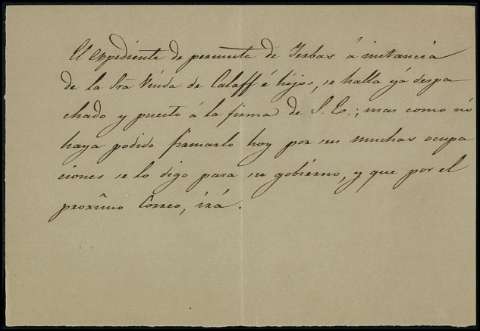 El expediente de permuta de Yerbas á instancia
de la Sra Viuda de Calaff é hijos, se halla yá despa
chado y puesto á la firma de S. E.; mas como nó
haya podido firmarlo hoy por sus muchas ocupa
ciones se lo digo para su gobierno, y que por el
proximo Correo, irá.